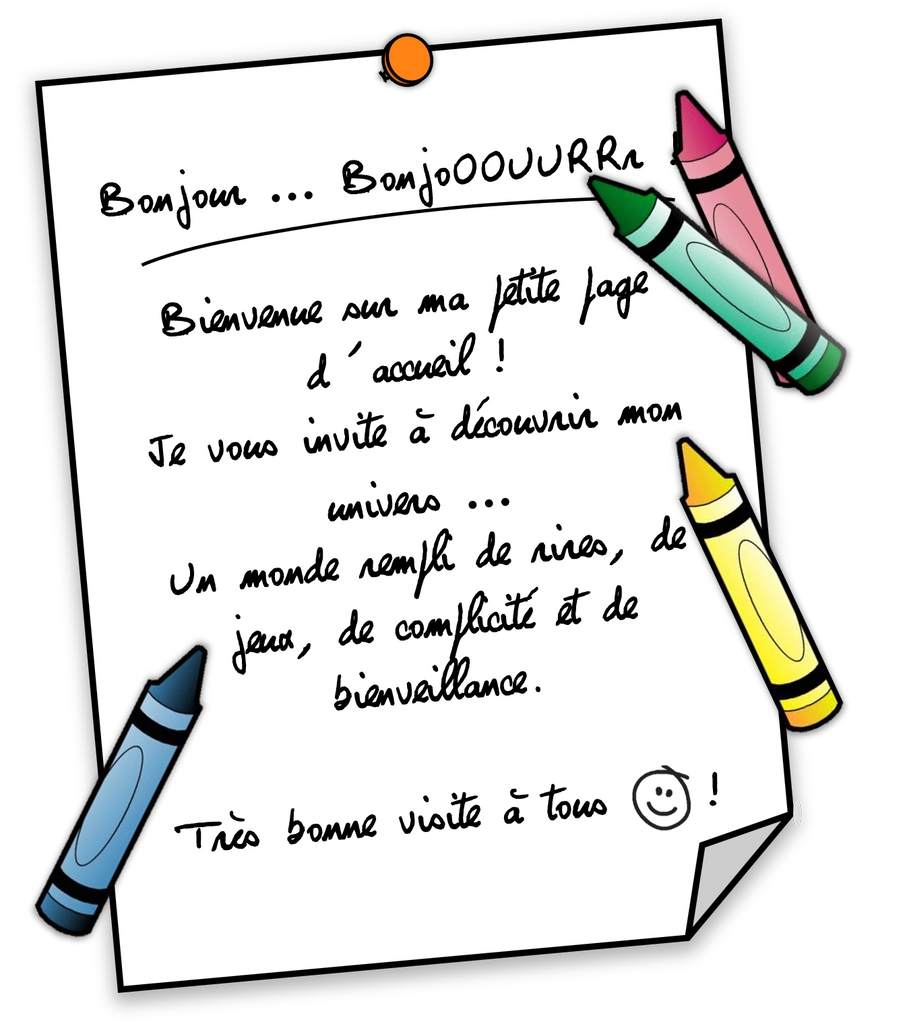 Bonjour ... BonjoOOUURRr !
Bienvenue sur ma petite page
d'accueil !
Je vous invite à découvrir mon
univers ...
Un monde rempli de rires, de
jeux, de complicité et de
bienveillance.
Très bonne visite à tous !